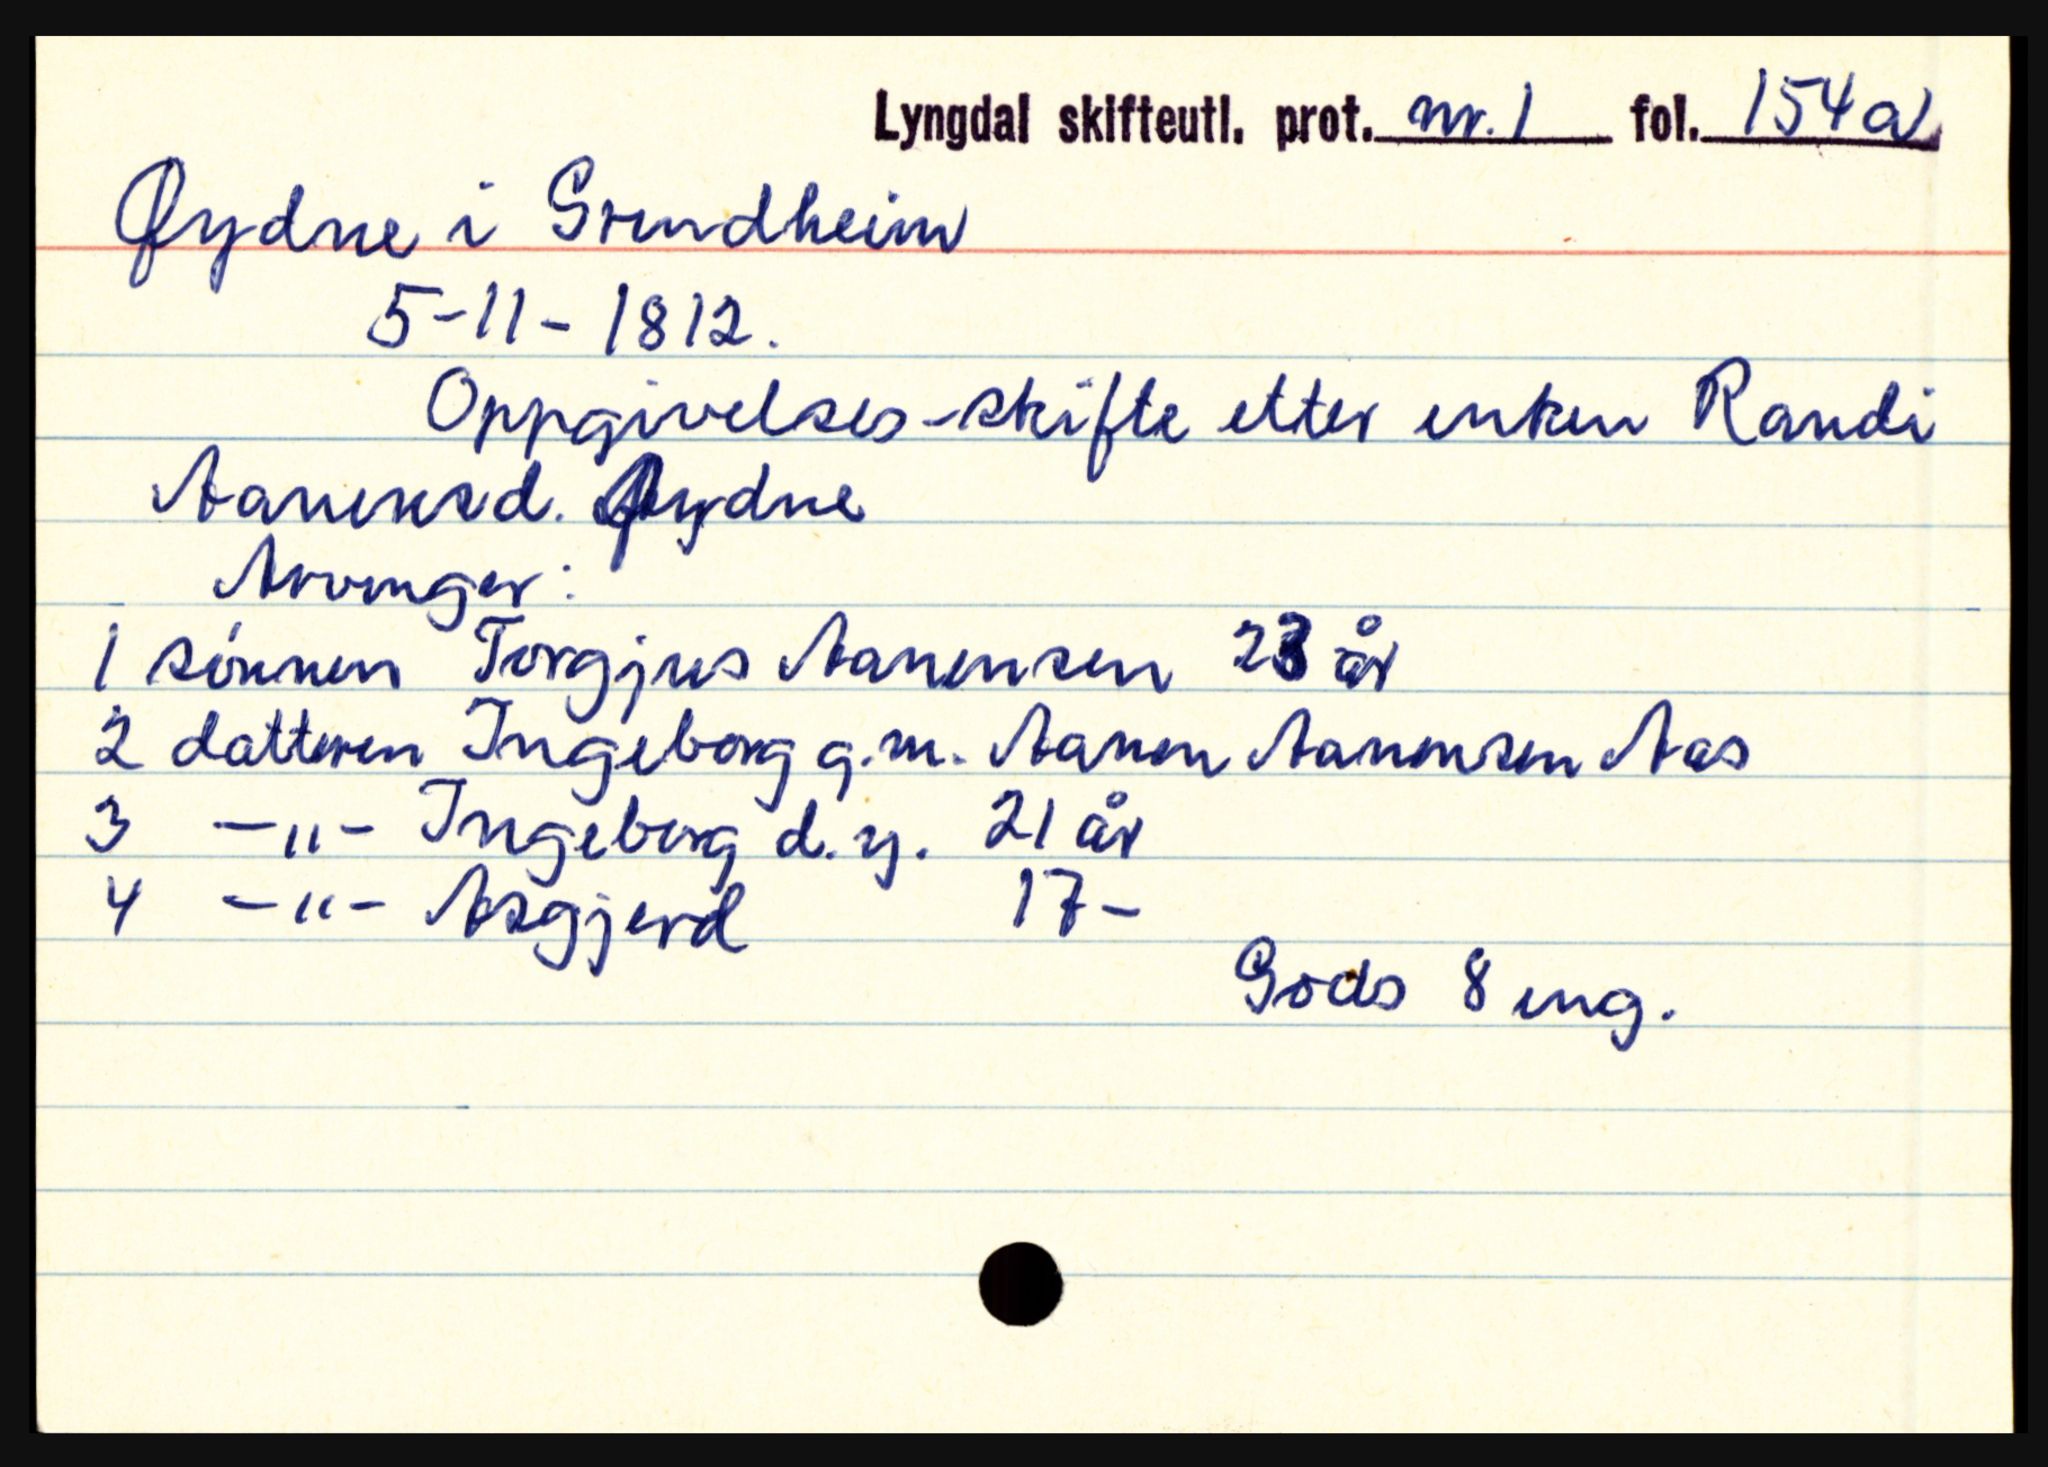 Lyngdal skifteutl. prot. nr. 1 fol. 154a
Øydne i Grindheim
5-11-1812.
Oppgivelses-skifte etter enken Randi
Aanensd. Øydne
Arvinger:
1 sønnen Torgjus Aanensen 23 år
2 datteren Ingeborg g.m. Aanen Aanensen Aas
3 -"- Ingeborg d.y. 21 år
4 -"- Asgjerd 17-
Gods 8 eng.